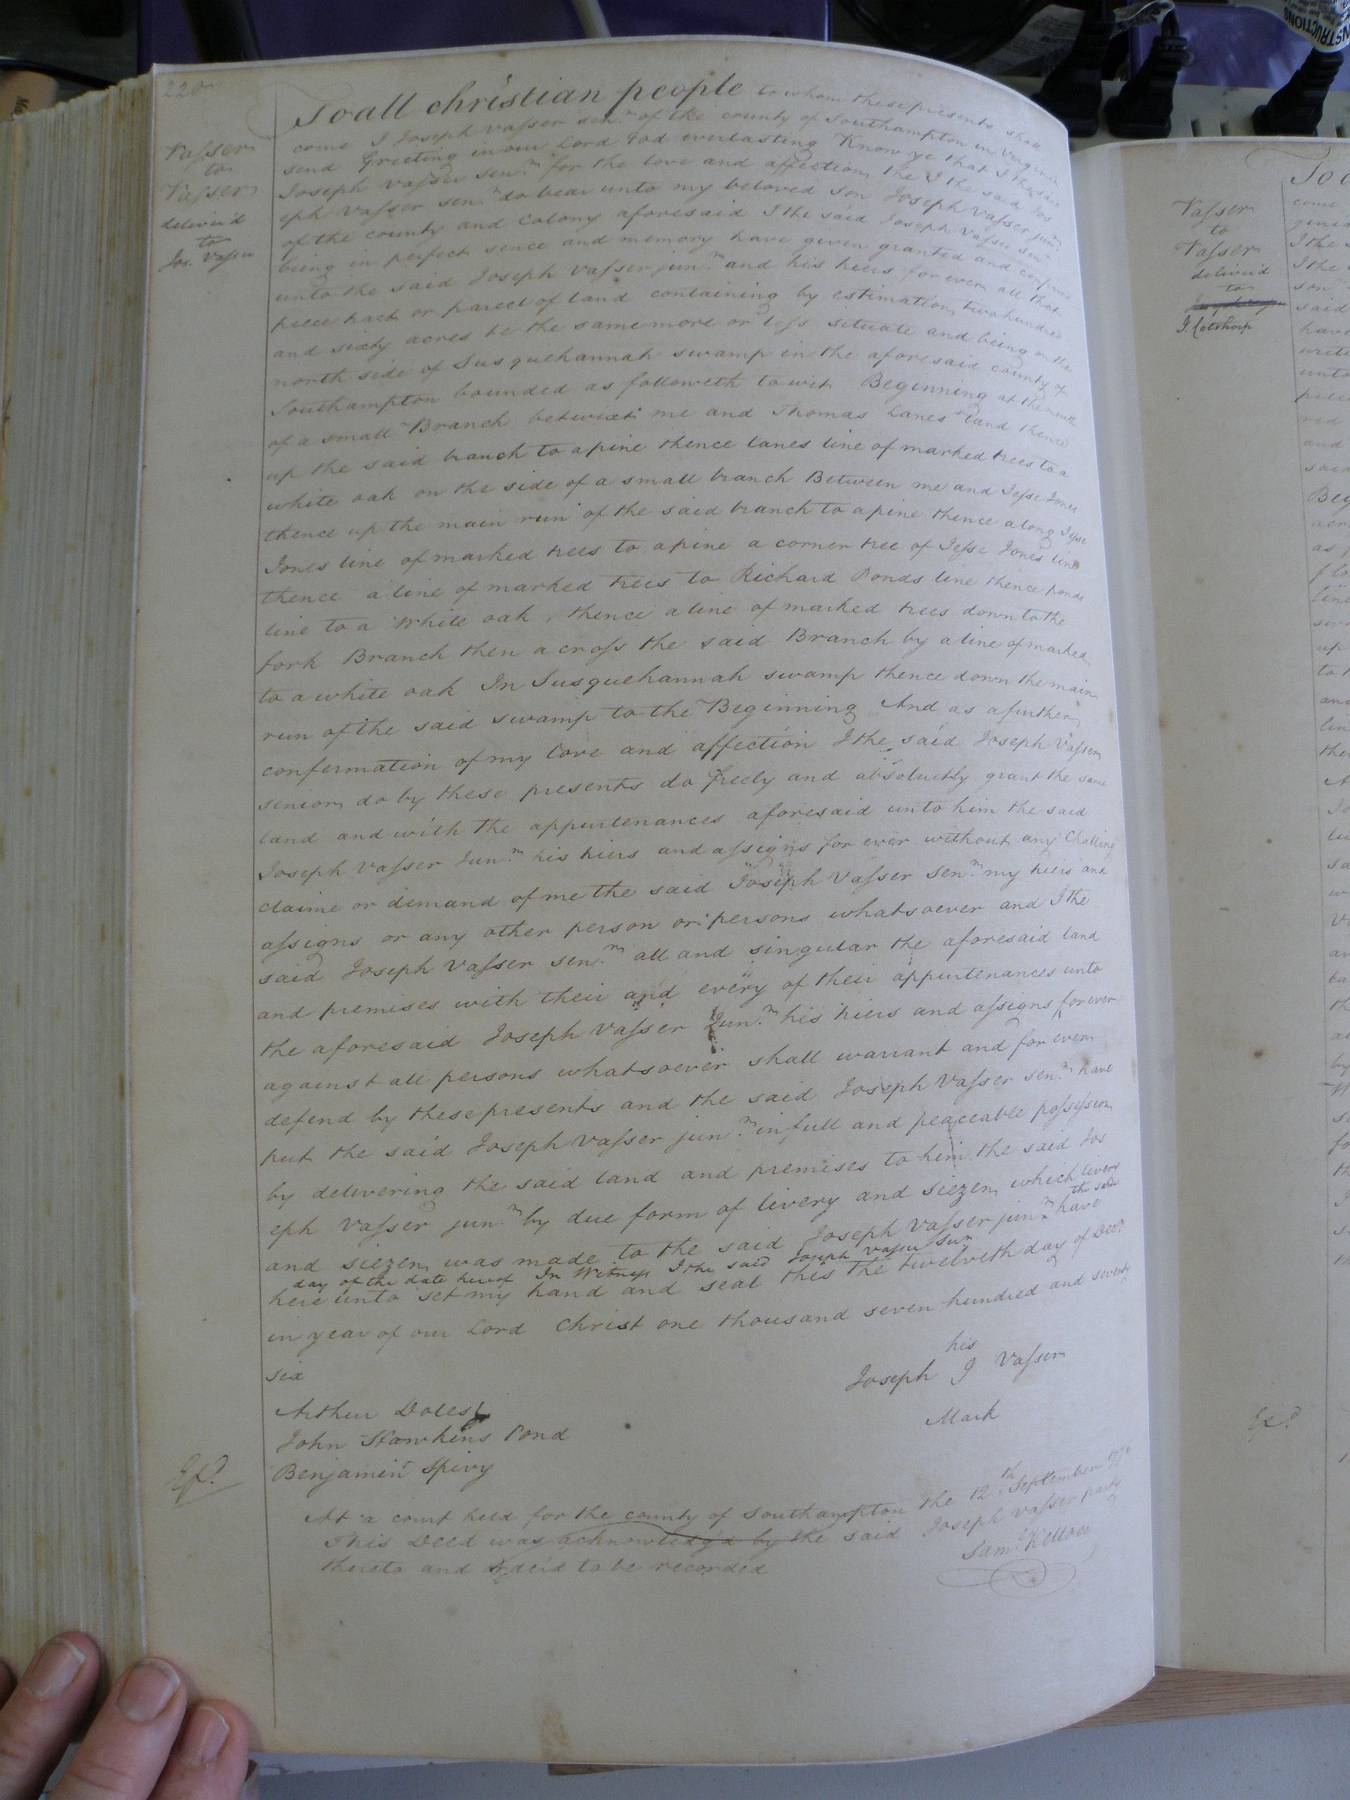 220
Vasser
to
Vasser
deliver'd
to
Jos. Vasser
To all christian people to whom these presents shall
come I Joseph Vasser senr. of the county of Southampton in Virginia
send Greeting in our Lord God everlasting Know ye that I the said
Joseph Vasser senr. for the love and affection the I the said Jos
eph Vasser senr. do bear unto my beloved son Joseph Vasser junr.
of the county and Colony aforesaid I the said Joseph Vasser senr.
being in perfect sence and memory have given granted and confirmd
unto the said Joseph Vasser junr. and his heirs for ever all that
piece tract or parcel of land containing by estimation two hundred
and sixty acres be the same more or less situate and being on the
north side of Susquehannah swamp in the aforesaid county of
Southampton bounded as followeth to wit Beginning at the mouth
of a small Branch betwixt me and Thomas Lanes land thence
up the said branch to a pine thence lanes line of marked trees to a
white oak on the side of a small branch Between me and Jesse Jones
thence up the main run of the said branch to a pine thence along Jesse
Jones line of marked trees to a pine a corner tree of Jesse Jones line
thence a line of marked trees to Richard Ponds line thence ponds
line to a White oak, thence a line of marked trees down to the
fork Branch then across the said Branch by a line of marked
to a white oak In Susquehannah swamp thence down the main
run of the said swamp to the Beginning And as a further
confermation of my love and affection I the said Joseph Vasser
senior do by these presents do freely and absolutly grant the same
land and with the appurtenances aforesaid unto him the said
Joseph Vasser Junr. his heirs and assigns for ever without any Challing
claime or demand of me the said Joseph Vasser senr. my heirs and
assigns or any other person or persons whatsoever and I the
said Joseph Vasser senr. all and singular the aforesaid land
and premises with their and every of their appurtenances unto
the aforesaid Joseph Vasser Junr. his heirs and assigns forever
against all persons whatsoever shall warrant and for ever
defend by these presents and the said Joseph Vasser senr. have
put the said Joseph Vasser junr. in full and peaceable possession
by delivering the said land and premises to him the said Jos
eph Vasser junr. by due form of livery and siezen which livery
and siezen was made to the said Joseph Vasser junr. the said
day of the date hereof In Witness I the said Joseph Vasser Senr have
here unto set my hand and seal this the twelveth day of Decr.
in year of our Lord Christ one thousand seven hundred and seventy
six
his
Joseph J Vasser
Mark
Arthur Doles
John Hawkins Pond
Benjamin Spivy
Exd.
At a court held for the county of Southampton the 12th September
This Deed was acknowledg'd by the said Joseph Vasser party
thereto and ordeid to be recorded
Sam. Kello
Vasser
to
Vasser
deliver'd
to
Exd.